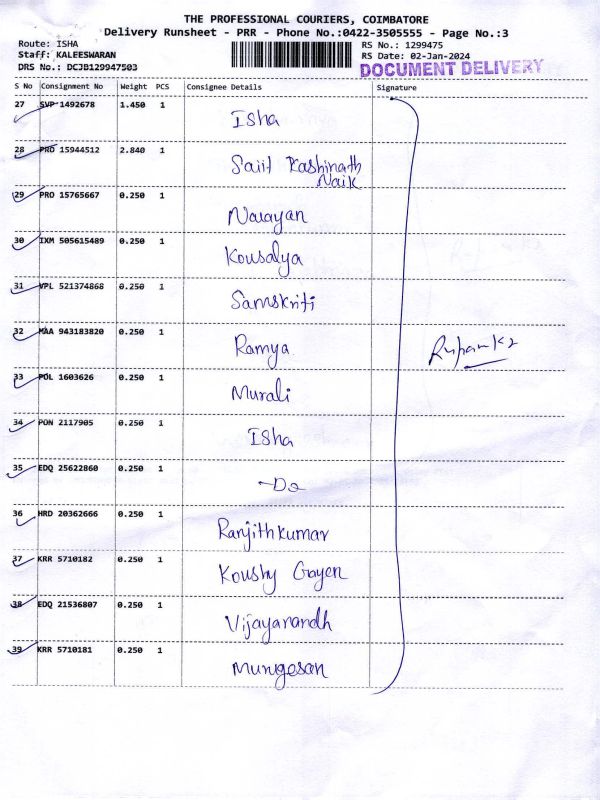 THE PROFESSIONAL COURIERS, COIMBATORE
Delivery Runsheet - PRR - Phone No.:0422-3505555 - Page No.:3
Route: ISHA
RS No.: 1299475
Staff: KALEESWARAN
RS Date: 02-Jan-2024
DRS No.: DCJB129947503
DOCUMENT DELIVERY
S No Consignment No Weight PCS Consignee Details Signature
27 SVP 1492678 1.450 1 Isha
28 PRD 15944512 2.840 1 Saiit Kashinath
Naik
29 PRO 15765667 0.250 1 Narayan
30 IXM 505615489 0.250 1 Kousalya
31 VPL 521374868 0.250 1 Samskriti
32 MAA 943183820 0.250 1 Ramya
33 POL 1603626 0.250 1 Murali
34 PON 2117905 0.250 1 Isha
35 EDQ 25622860 0.250 1 -Do
36 HRD 20362666 0.250 1 Ranjithkumar
37 KRR 5710182 0.250 1 Koushy Gayen
38 EDQ 21536807 0.250 1 Vijayanandh
39 KRR 5710181 0.250 1 Murugesan